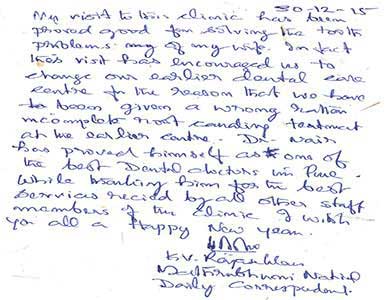 30-12-15
My visit to this clinic has been
proved good for solving the tooth
problems any of my wife. In fact
this visit has encouraged us to
change our earlier dental care
centre for the reason that we have
to been given a wrong
incomplete root canaling treatment
at the earlier centre. Dr. Nair
has proved himself as one of
the best Dental doctors in Pune.
While thanking him for the best
services recied by all other staff
members of the clinic I wish
you all a Happy New Year.
K.V.
Daily Correspondent.